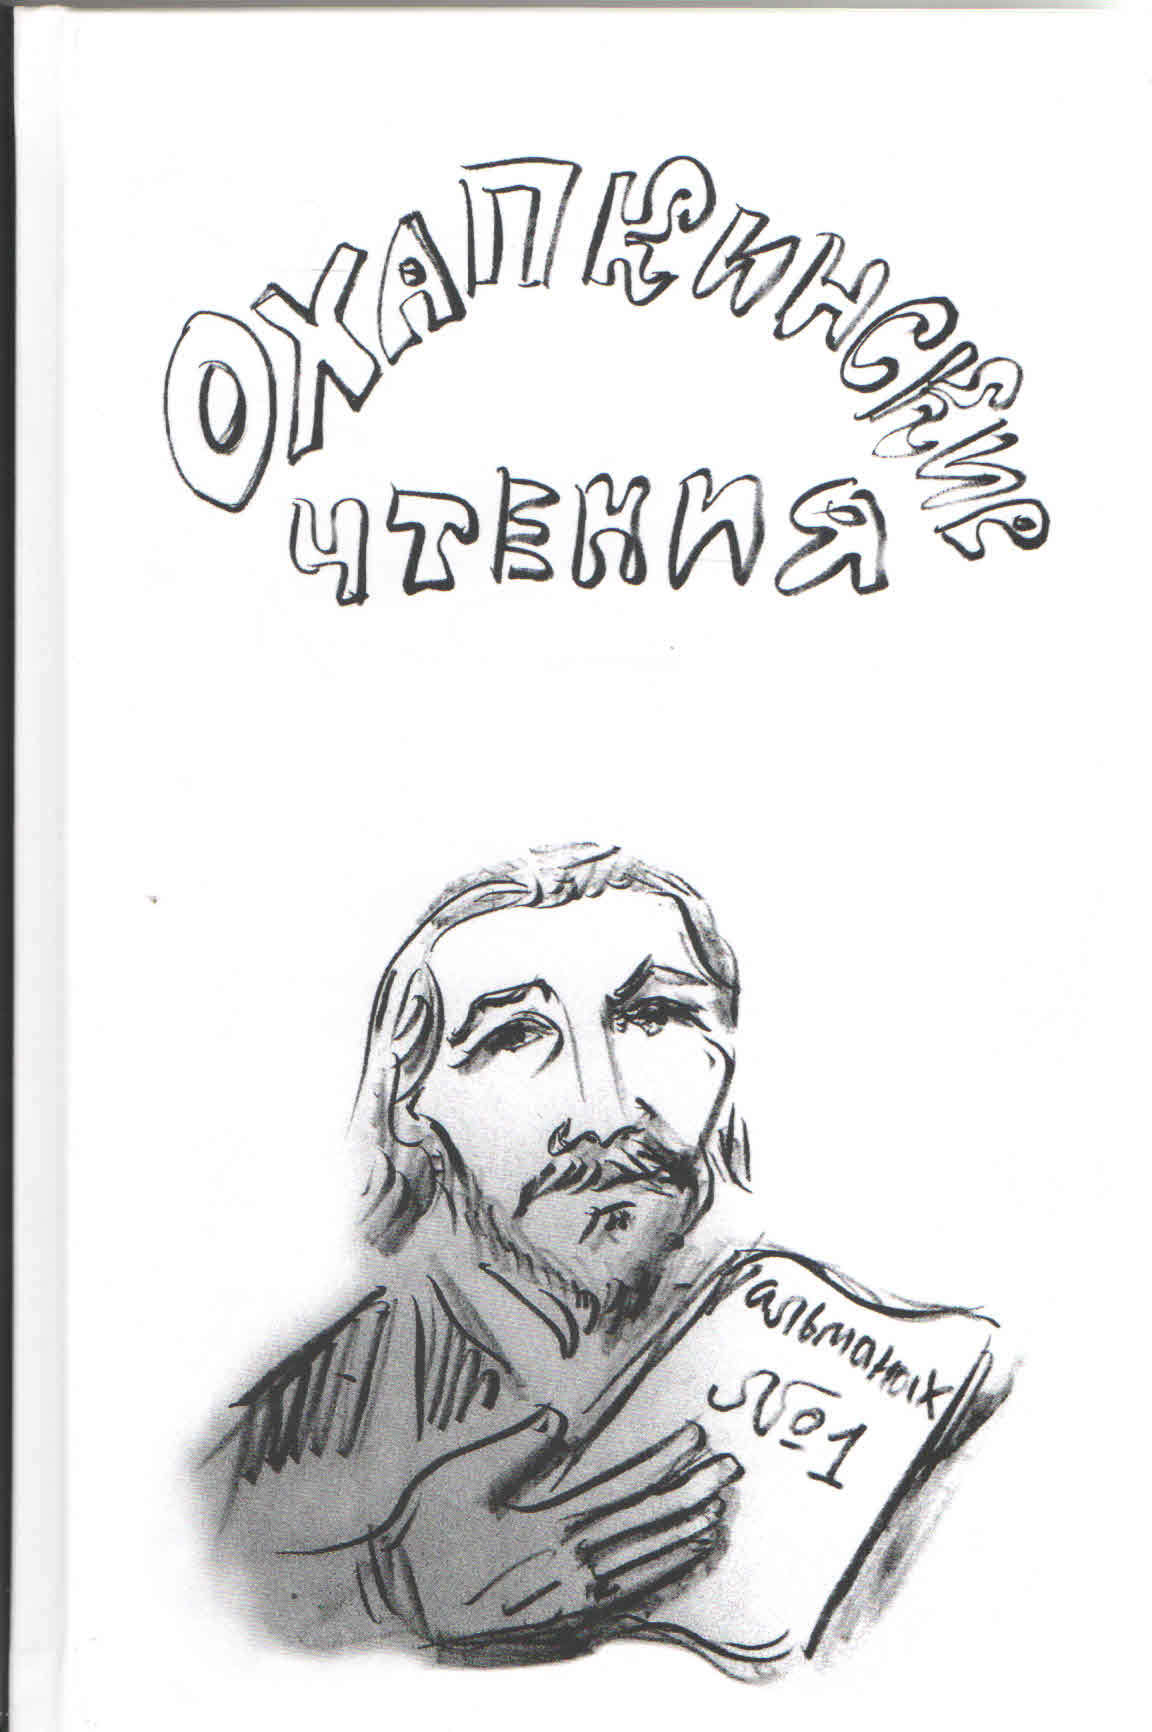 ОХАПКИНСКИЕ
ЧТЕНИЯ
альманах
№1